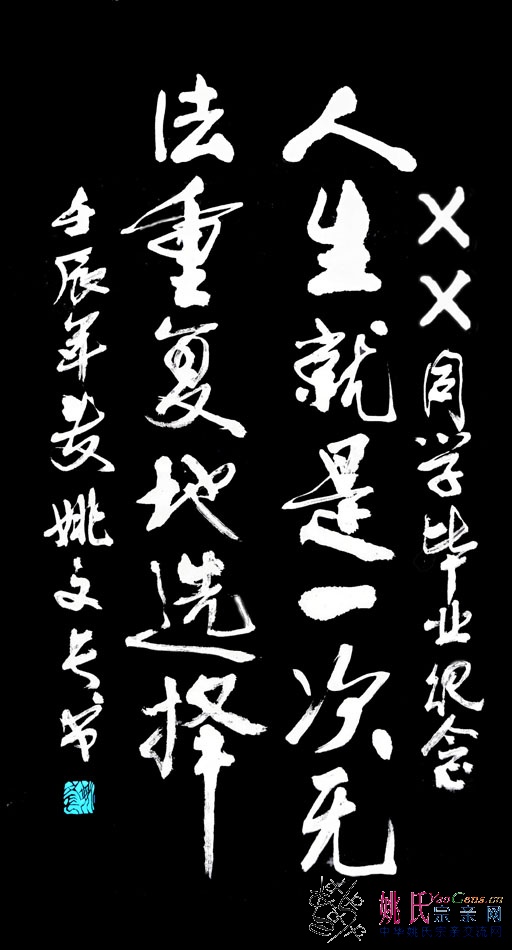 ××同学毕业纪念
人生就是一次无
法重复地选择
壬辰年夏姚文长书
姚氏宗亲网
YaoGens.cn
中华姚氏宗亲交流网